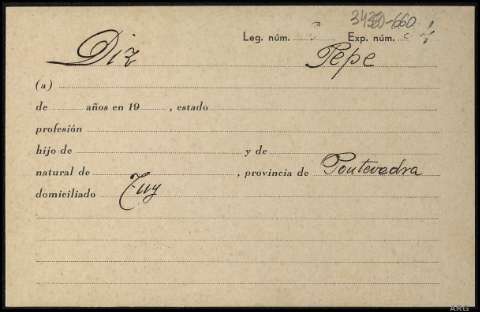 34360-660
Leg. núm. Exp. núm.
Diz Pepe
(a)
de años en 19 , estado
profesión
hijo de y de
natural de , provincia de Pontevedra
domiciliado Tuy